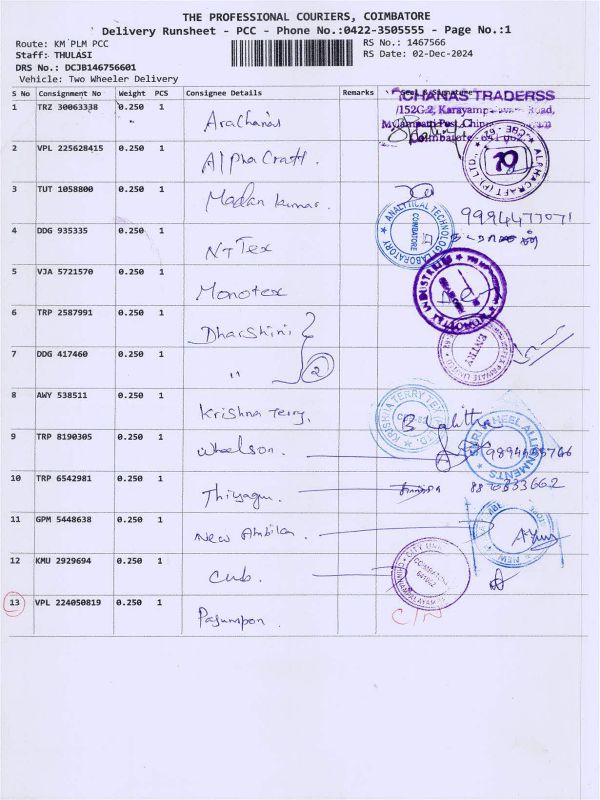 THE PROFESSIONAL COURIERS, COIMBATORE
Delivery Runsheet - PCC - Phone No.:0422-3505555 - Page No.:1
Route: KM PLM PCC
RS No.: 1467566
Staff: THULASI
RS Date: 02-Dec-2024
DRS No.: DCJB146756601
Vehicle: Two Wheeler Delivery
S No Consignment No Weight PCS Consignee Details Remarks Seal & Signature
1 TRZ 30063338 0.250 1 Arachanas
CHANAS TRADERSS
/152G.2, Karayamp Road,
Coimbatore - 641 062
2 VPL 225628415 0.250 1 Alpha Craft.
ALPHACRAFT (P) LTD., CBE - 62
3 TUT 1058800 0.250 1 Madan Kumar.
9994477071
ANALYTICAL TECHNOLOGY LABORATORY
COIMBATORE
4 DDG 935335 0.250 1 NT Tex
5 VJA 5721570 0.250 1 Monotex
INDUSTRIES
6 TRP 2587991 0.250 1 Dharshini
ENTRY
PRIVATE LIMITED
7 DDG 417460 0.250 1 " 2
8 AWY 538511 0.250 1 Krishna Terry.
KRISHNA TERRY TEX (P) LTD.
B. Lalitha
9 TRP 8190305 0.250 1 Wheelson.
WHEEL ALIGNMENTS
10 TRP 6542981 0.250 1 Thiyagu.
8870333662
11 GPM 5448638 0.250 1 New Ambika
NEW
12 KMU 2929694 0.250 1 Cub.
CITY UNION
COIMBATORE
641062
CHINNIYAMPALAYAM
13 VPL 224050819 0.250 1 Pasumpon.
C/N